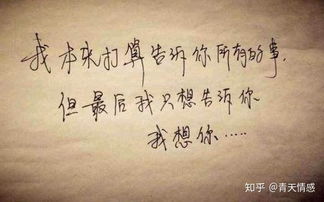 我本来打算告诉你所有的事,
但最后我只想告诉你
我想你·····
知乎 @青天情感